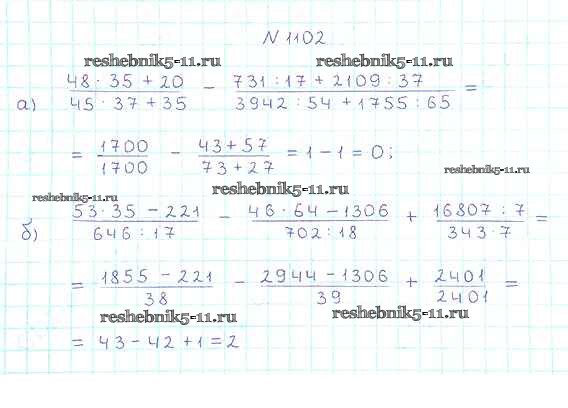 N 1102
reshebnik5-11.ru reshebnik5-11.ru
а) (48 · 35 + 20)/(45 · 37 + 35) − (731 : 17 + 2109 : 37)/(3942 : 54 + 1755 : 65) =
= 1700/1700 − (43 + 57)/(73 + 27) = 1 − 1 = 0;
reshebnik5-11.ru reshebnik5-11.ru reshebnik5-11.ru
б) (53 · 35 − 221)/(646 : 17) − (46 · 64 − 1306)/(702 : 18) + (16807 : 7)/(343 · 7) =
= (1855 − 221)/38 − (2944 − 1306)/39 + 2401/2401 =
reshebnik5-11.ru reshebnik5-11.ru
= 43 − 42 + 1 = 2